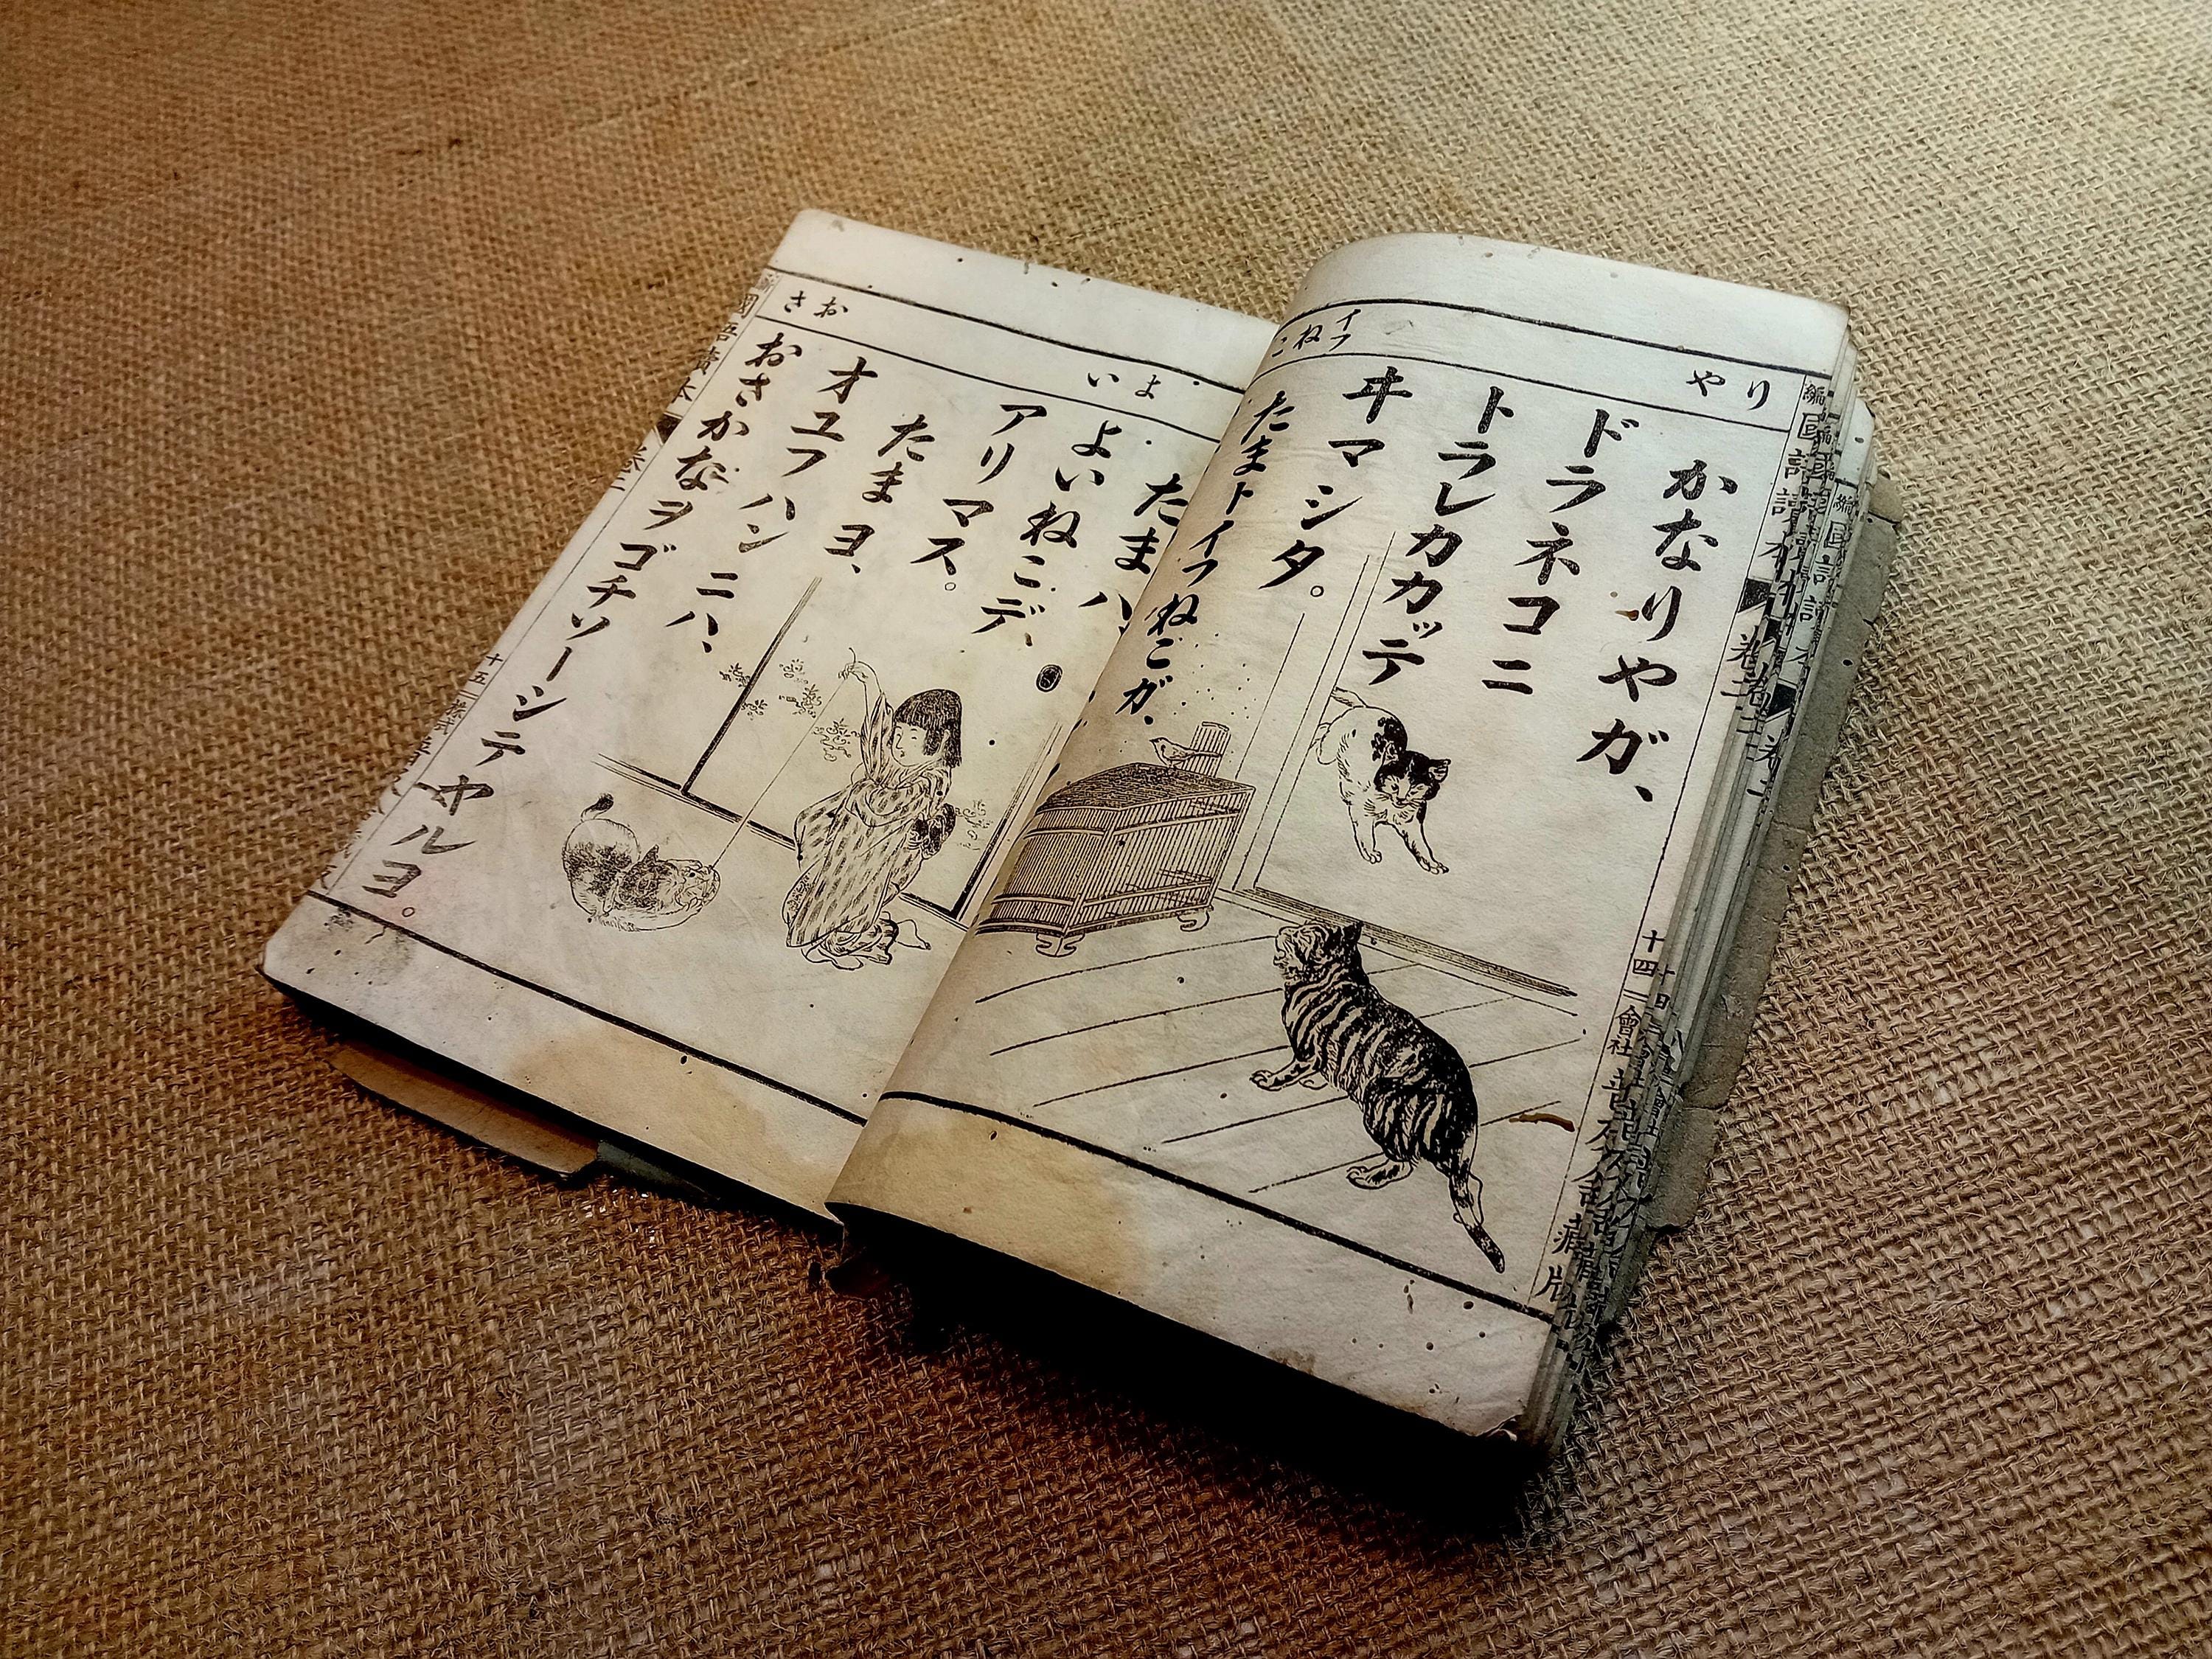 やり
イフ
ねこ
かなりやガ、
ドラネコニ
トラレカカッテ
ヰマシタ。
たまトイフねこガ、
よい
おさ
たまハ、
よいねこデ、
アリマス。
たまヨ、
オユフハンニハ、
おさかなヲゴチソーシテヤルヨ。
編國語讀本
卷二
十四
會社
藏版
國語讀本
卷二
十五